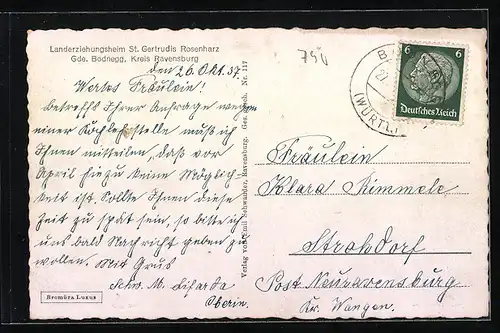 Landerziehungsheim St. Gertrudis Rosenharz
Gde. Bodnegg, Kreis Ravensburg
den 26. Okt. 37.
Wertes Fräulein!
Betreffs Ihrer Anfrage wegen
einer Kochlehrstelle muß ich
Ihnen mitteilen, daß vor
April hiezu keine Möglich-
keit ist. Sollte Ihnen diese
Zeit zu spät sein, so bitte ich
uns bald Nachricht geben zu
wollen. Mit Gruß
Schw. M.
Oberin.
Bromüra Luxus
Verlag von Emil Schwander, Ravensburg. Ges. gesch. Nr. 117
750
6 6
Deutsches Reich
(WÜRTT.)
Fräulein
Klara Kimmele
Strohdorf
Post Neuravensburg
Kr. Wangen.